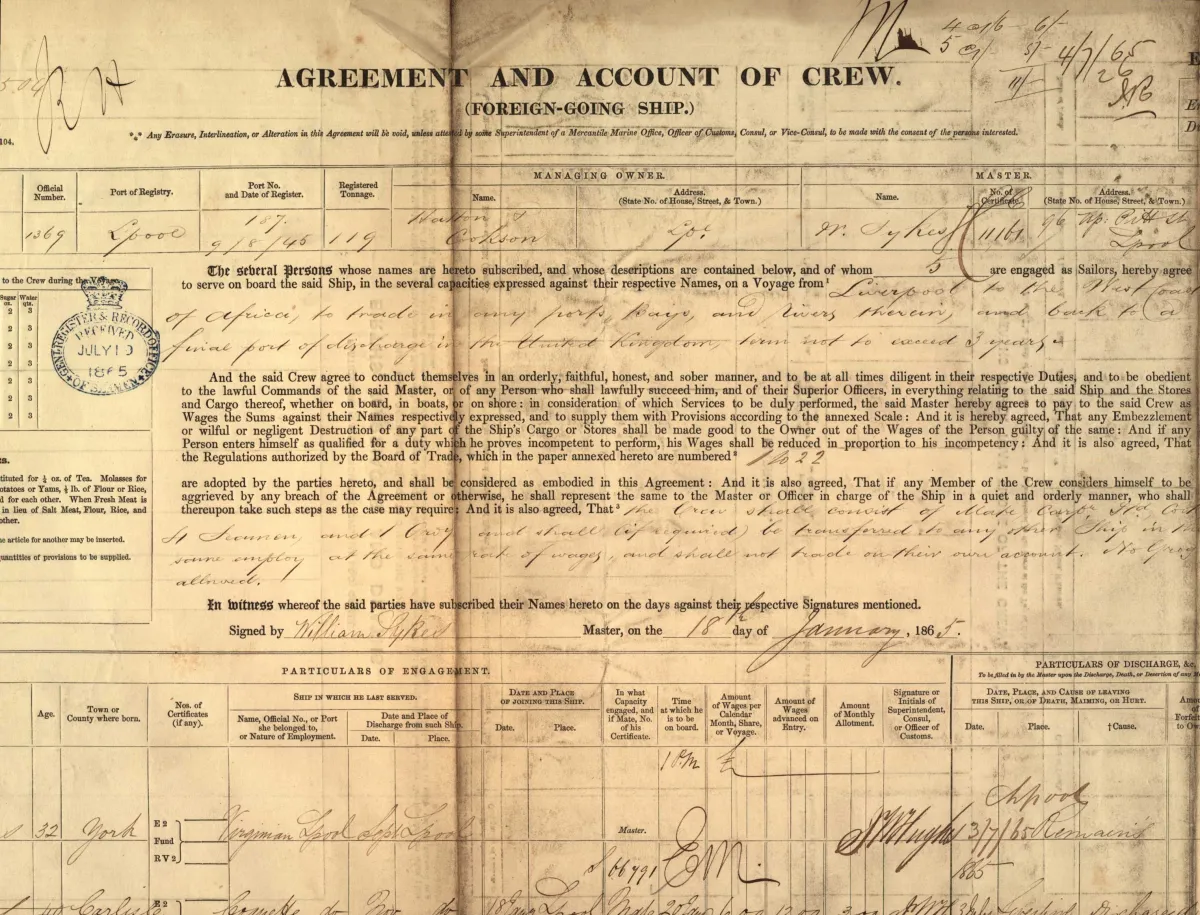 4/7/65
AGREEMENT AND ACCOUNT OF CREW.
(FOREIGN-GOING SHIP.)
Any Erasure, Interlineation, or Alteration in this Agreement will be void, unless attested by some Superintendent of a Mercantile Marine Office, Officer of Customs, Consul, or Vice-Consul, to be made with the consent of the persons interested.
104.
MANAGING OWNER. MASTER.
Official Number. Port of Registry. Port No. and Date of Register. Registered Tonnage. Name. Address. (State No. of House, Street, & Town.) Name. No. of Certificate. Address. (State No. of House, Street, & Town.)
1369 Lpool 187. 9/8/45 119 Hatton & Cookson Lpl Wm Sykes 11161 96 Pitt St Lpool
The several Persons whose names are hereto subscribed, and whose descriptions are contained below, and of whom 5 are engaged as Sailors, hereby agree
to serve on board the said Ship, in the several capacities expressed against their respective Names, on a Voyage from¹ Liverpool to the West Coast
of Africa, to trade in any ports, Bays, and rivers therein, and back to a
final port of discharge in the United Kingdom, term not to exceed 3 years.
to the Crew during the Voyage.
Sugar oz. Water qts.
2 3
2 3
2 3
2 3
2 3
2 3
2 3
GENL REGISTER & RECORD OFFICE OF SEAMEN
RECEIVED
JULY 10
1865
And the said Crew agree to conduct themselves in an orderly, faithful, honest, and sober manner, and to be at all times diligent in their respective Duties, and to be obedient
to the lawful Commands of the said Master, or of any Person who shall lawfully succeed him, and of their Superior Officers, in everything relating to the said Ship and the Stores
and Cargo thereof, whether on board, in boats, or on shore: in consideration of which Services to be duly performed, the said Master hereby agrees to pay to the said Crew as
Wages the Sums against their Names respectively expressed, and to supply them with Provisions according to the annexed Scale: And it is hereby agreed, That any Embezzlement
or wilful or negligent Destruction of any part of the Ship's Cargo or Stores shall be made good to the Owner out of the Wages of the Person guilty of the same: And if any
Person enters himself as qualified for a duty which he proves incompetent to perform, his Wages shall be reduced in proportion to his incompetency: And it is also agreed, That
the Regulations authorized by the Board of Trade, which in the paper annexed hereto are numbered² 1 to 22
are adopted by the parties hereto, and shall be considered as embodied in this Agreement: And it is also agreed, That if any Member of the Crew considers himself to be
aggrieved by any breach of the Agreement or otherwise, he shall represent the same to the Master or Officer in charge of the Ship in a quiet and orderly manner, who shall
thereupon take such steps as the case may require: And it is also agreed, That³ the Crew shall consist of Mate Carpr Cook
4 Seamen and 1 Ordy and shall (if required) be transferred to any other Ship in the
same employ at the same rate of wages, and shall not trade on their own account. No Grog
allowed.
es.
stituted for ½ oz. of Tea. Molasses for
otatoes or Yams, ½ lb. of Flour or Rice,
d for each other. When Fresh Meat is
in lieu of Salt Meat, Flour, Rice, and
other.
ne article for another may be inserted.
quantities of provisions to be supplied.
In witness whereof the said parties have subscribed their Names hereto on the days against their respective Signatures mentioned.
Signed by William Sykes Master, on the 18th day of January, 1865.
PARTICULARS OF ENGAGEMENT. PARTICULARS OF DISCHARGE, &c.
To be filled in by the Master upon the Discharge, Death, or Desertion of any
Age. Town or County where born. Nos. of Certificates (if any). SHIP IN WHICH HE LAST SERVED. Name, Official No., or Port she belonged to, or Nature of Employment. Date and Place of Discharge from such Ship. Date. Place. DATE AND PLACE OF JOINING THIS SHIP. Date. Place. In what Capacity engaged, and if Mate, No. of his Certificate. Time at which he is to be on board. Amount of Wages per Calendar Month, Share, or Voyage. Amount of Wages advanced on Entry. Amount of Monthly Allotment. Signature or Initials of Superintendent, Consul, or Officer of Customs. DATE, PLACE, AND CAUSE OF LEAVING THIS SHIP, OR OF DEATH, MAIMING, OR HURT. Date. Place. †Cause.
32 York E2 Fund RV2 Virginian Lpool Sept Lpool Master. 3/7/65 Lpool Remains
1865
40 Carlisle E2 do Nov do 18 Jany Lpool Mate 20 Jany